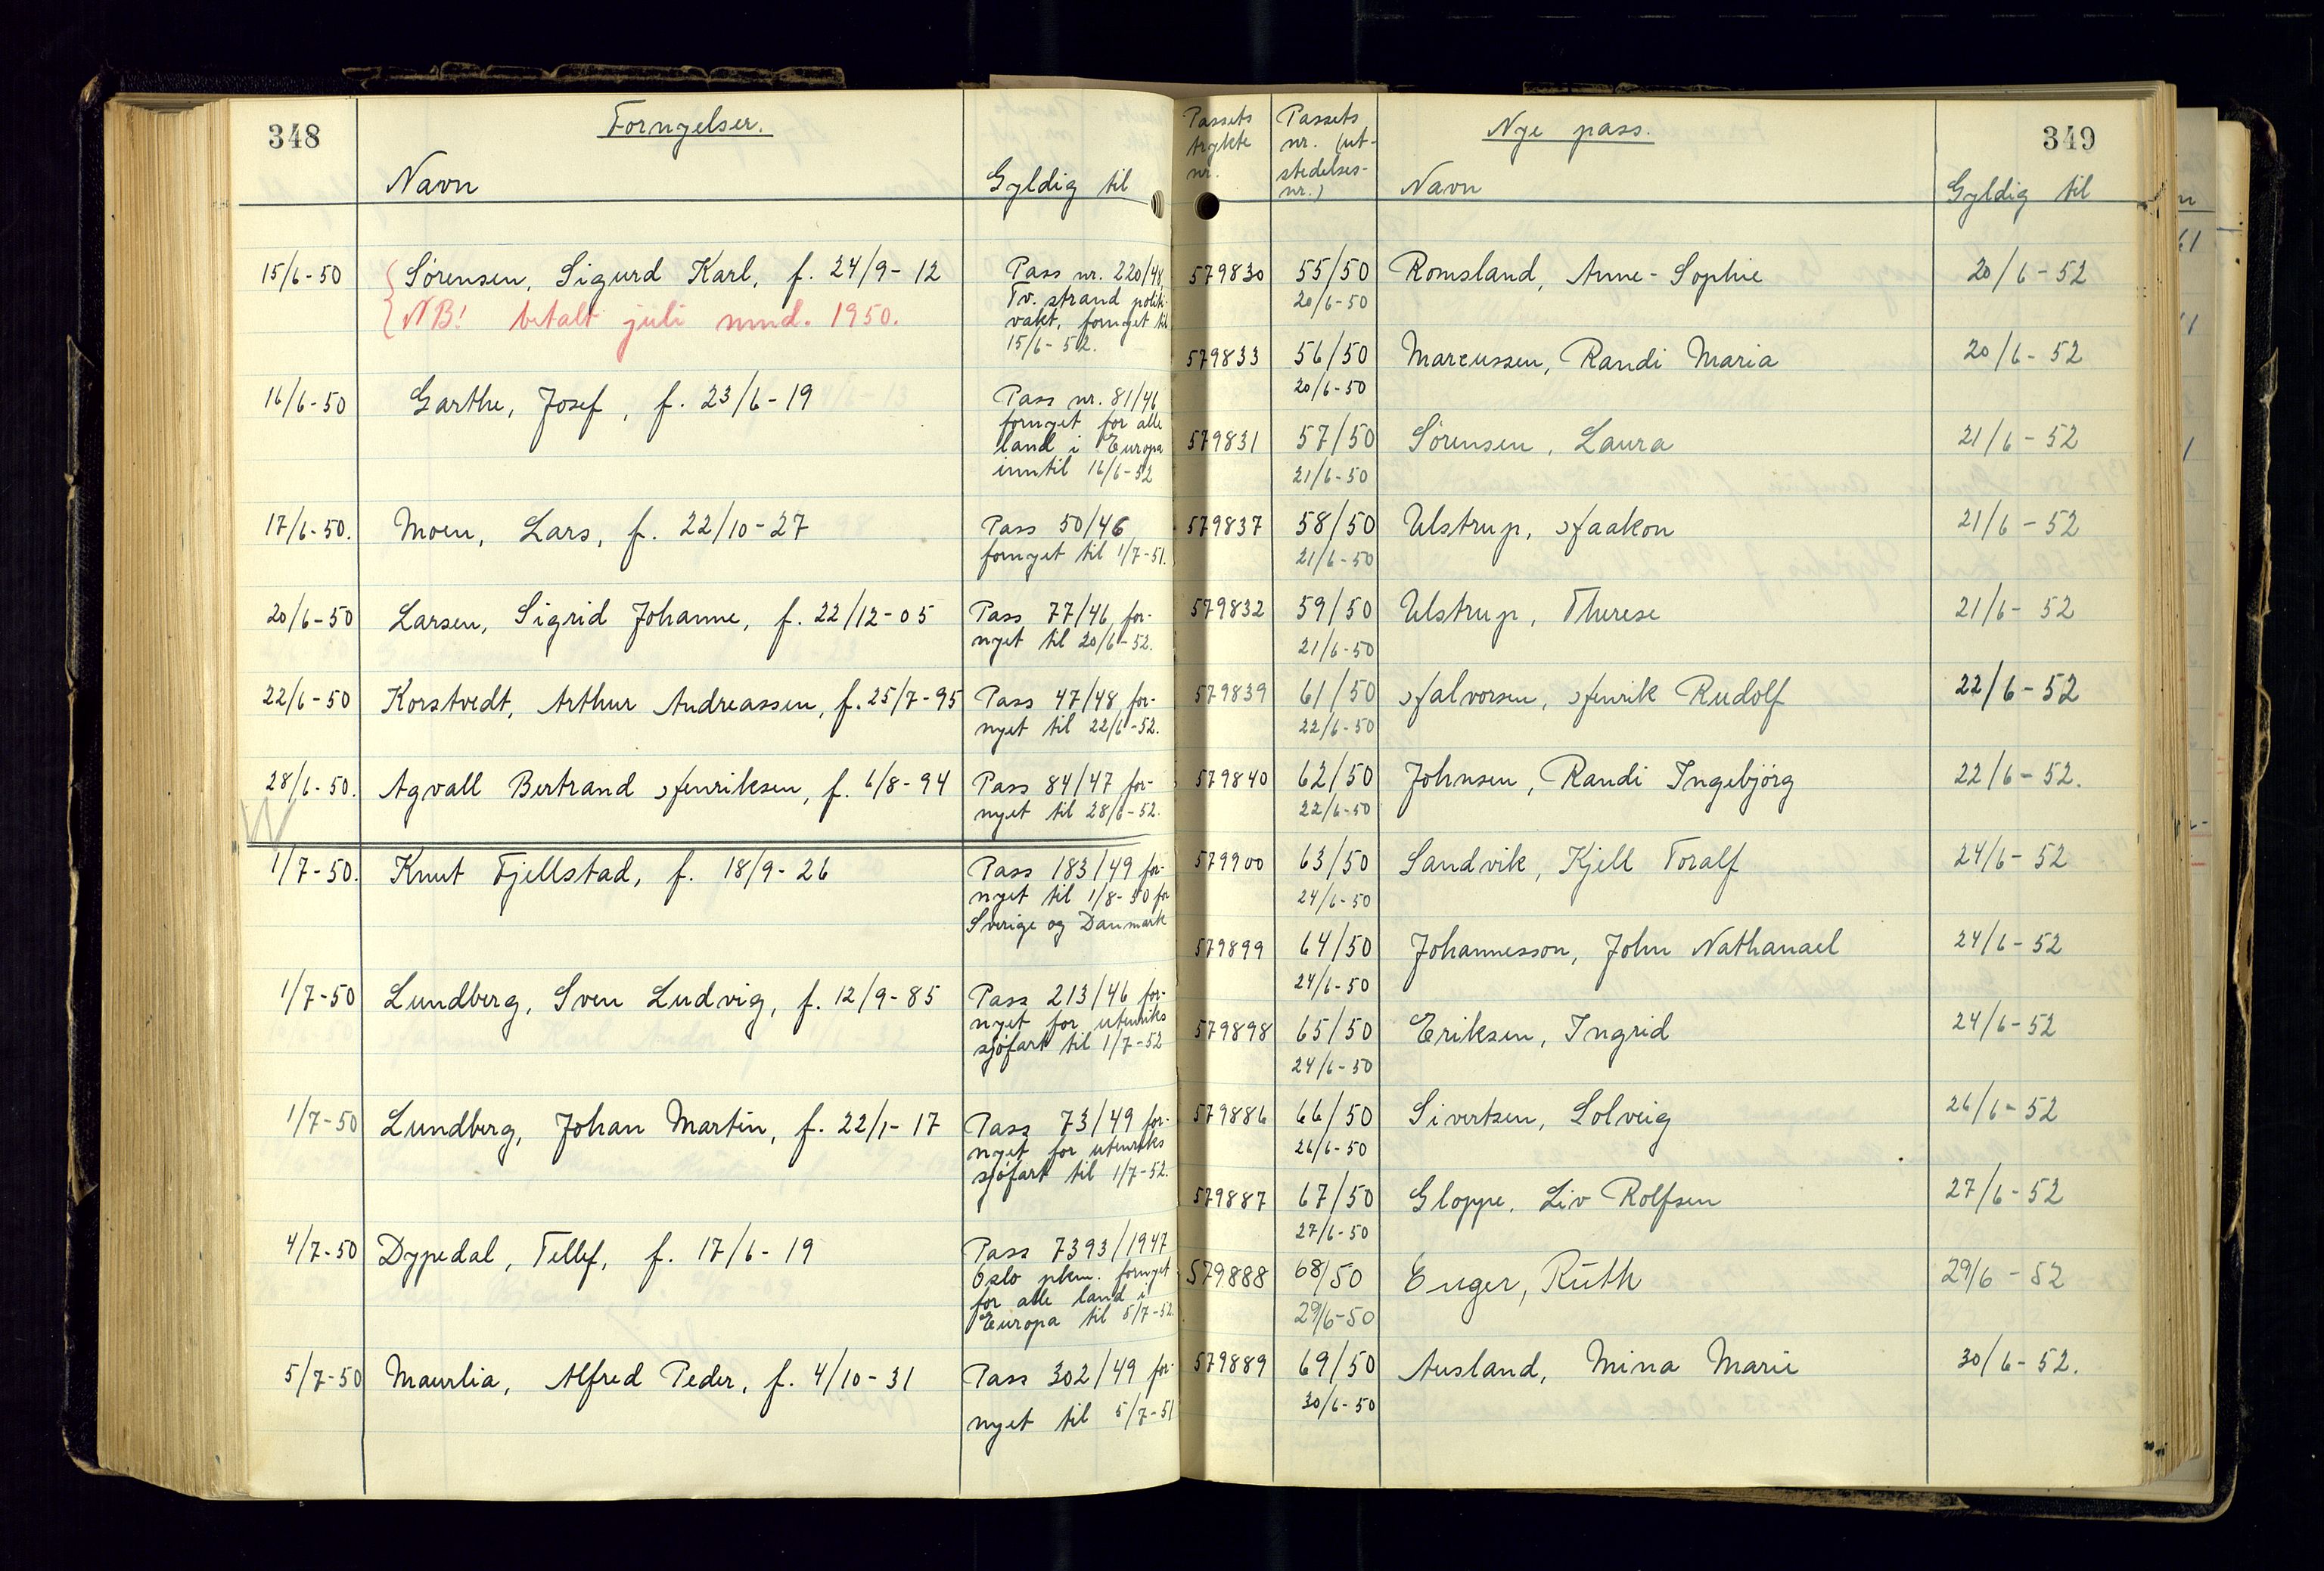 348
Fornyelser.
Navn
Gyldig til
15/6-50 Sørensen, Sigurd Karl, f. 24/9-12 Pass nr. 220/48,
Tv.strand politi-
NB! betalt juli mnd. 1950. vakt, fornyet til
15/6-52.
16/6-50 Garthe, Josef, f. 23/6-19 Pass nr. 81/46
fornyet for alle
land i Europa
inntil 16/6-52
17/6-50. Moen, Lars, f. 22/10-27 Pass 50/46
fornyet til 1/7-51.
20/6-50 Larsen, Sigrid Johanne, f. 22/12-05 Pass 77/46, for-
nyet til 20/6-52.
22/6-50 Korstvedt, Arthur Andreassen, f. 25/7-95 Pass 47/48, for-
nyet til 22/6-52.
28/6-50. Agvall Bertrand Henriksen, f. 6/8-94 Pass 84/47 for-
nyet til 28/6-52.
1/7-50. Knut Fjellstad, f. 18/9-26 Pass 183/49 for-
nyet til 1/8-50 for
Sverige og Danmark
1/7-50 Lundberg, Sven Ludvig, f. 12/9-85 Pass 213/46 for-
nyet for utenriks
sjøfart til 1/7-52
1/7-50 Lundberg, Johan Martin, f. 22/1-17 Pass 73/49 for-
nyet for utenriks
sjøfart til 1/7-52.
4/7-50 Dypedal, Tellef, f. 17/6-19 Pass 7393/1947
Oslo pkm. fornyet
for alle land i
Europa til 5/7-52.
5/7-50 Maurlia, Alfred Peder, f. 4/10-31 Pass 302/49 for-
nyet til 5/7-51
Passets
trykte
nr.
Passets
nr. (ut-
stedelses-
nr.)
Nye pass.
349
Navn
Gyldig til
579830 55/50 Romsland, Anne-Sophie 20/6-52
20/6-50
579833 56/50 Marcussen, Randi Maria 20/6-52
20/6-50
579831 57/50 Sørensen, Laura 21/6-52
21/6-50
579837 58/50 Ulstrup, Haakon 21/6-52
21/6-50
579832 59/50 Ulstrup, Therese 21/6-52
21/6-50
579839 61/50 Halvorsen, Henrik Rudolf 22/6-52
22/6-50
579840 62/50 Johnsen, Randi Ingebjörg 22/6-52.
22/6-50
579900 63/50 Sandvik, Kjell Toralf 24/6-52
24/6-50
579899 64/50 Johannesson, John Nathanael 24/6-52
24/6-50
579898 65/50 Eriksen, Ingrid 24/6-52
24/6-50
579886 66/50 Sivertsen, Solveig 26/6-52
26/6-50
579887 67/50 Gloppe, Liv Rolfsen 27/6-52
27/6-50
579888 68/50 Enger, Ruth 29/6-52
29/6-50
579889 69/50 Ausland, Mina Marie 30/6-52.
30/6-50